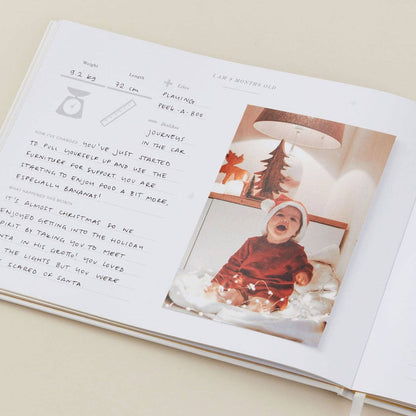 I AM 9 MONTHS OLD
Weight
9.2 kg
Length
72 cm
Likes
PLAYING
PEEK-A-BOO
Dislikes
JOURNEYS
IN THE CAR
HOW I'VE CHANGED YOU'VE JUST STARTED
TO PULL YOURSELF UP AND USE THE
FURNITURE FOR SUPPORT. YOU ARE
STARTING TO ENJOY FOOD A BIT MORE,
ESPECIALLY BANANAS!
WHAT HAPPENED THIS MONTH
IT'S ALMOST CHRISTMAS SO WE
ENJOYED GETTING INTO THE HOLIDAY
SPIRIT BY TAKING YOU TO MEET
SANTA IN HIS GROTTO! YOU LOVED
THE LIGHTS BUT YOU WERE
SCARED OF SANTA